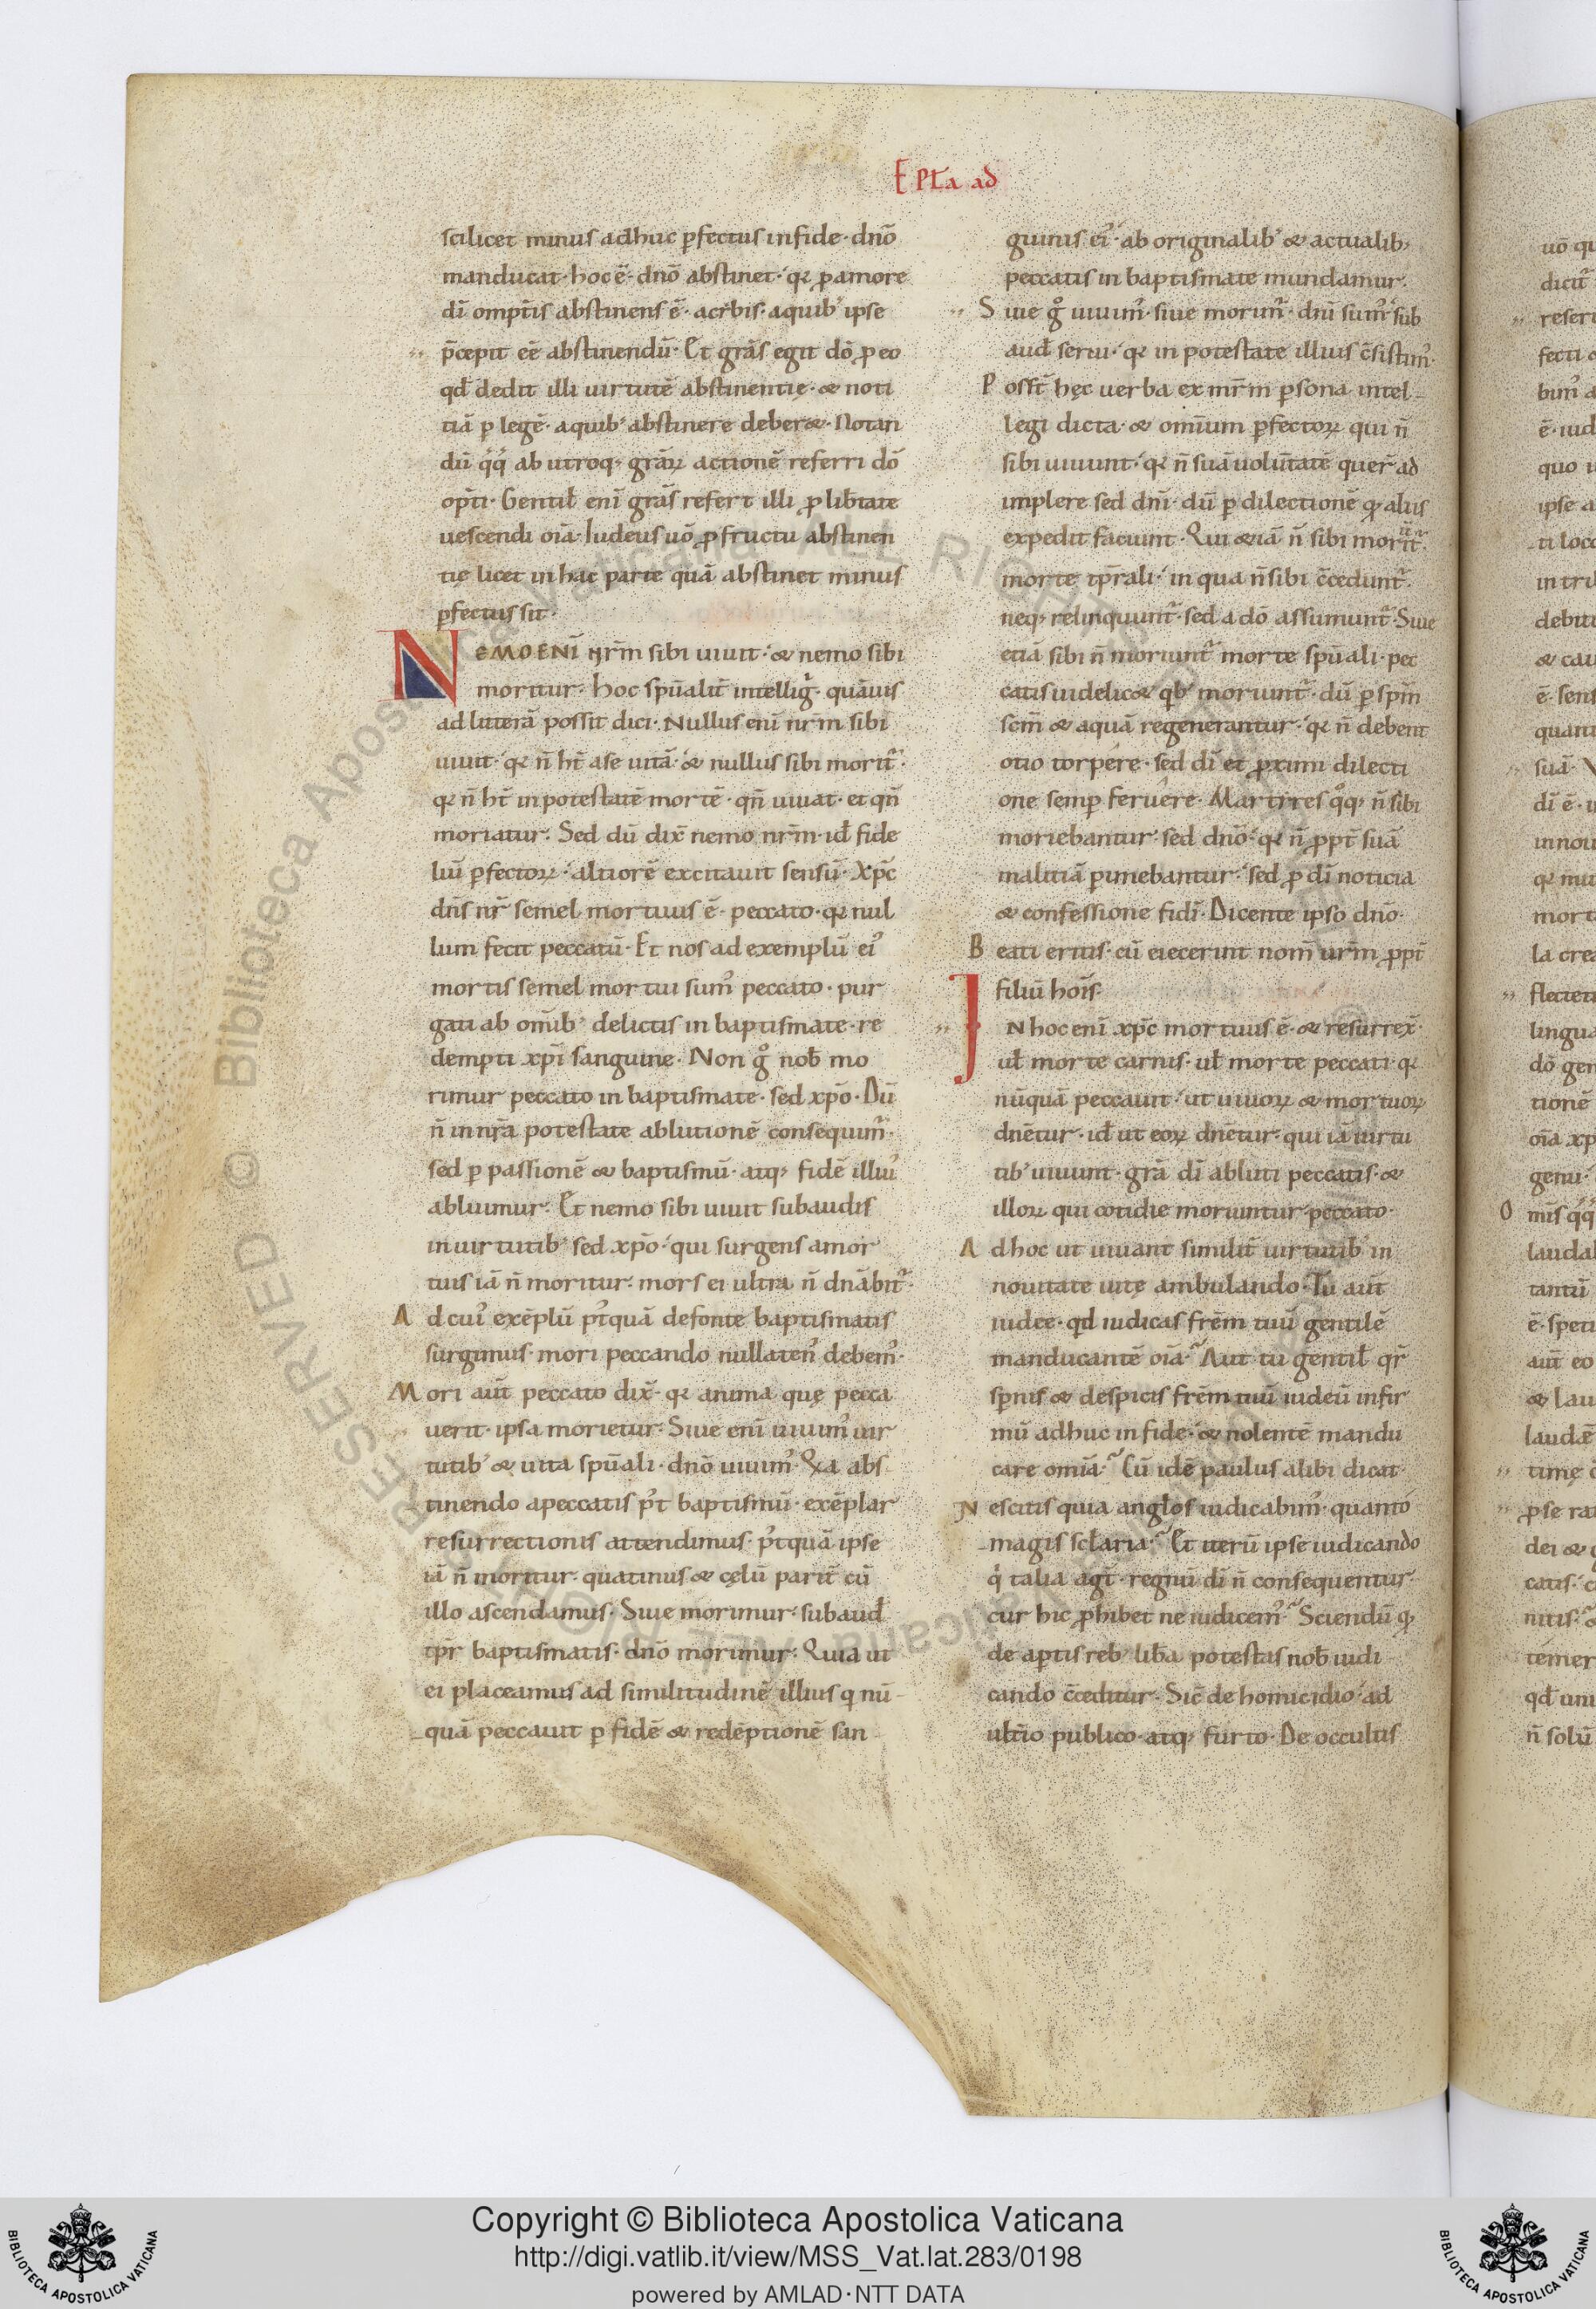 EPła ad
scilicet minus adhuc ꝑfectus infide· dnō
manducat· hoc ē· dnō abstinet· qꝛ ꝓamore
dī omptīs abstinens ē· acibis· aquibꝰ ipse
p̄cepit eē abstinendū· Et grās egit dō ꝓ eo
qđ dedit illi uirtutē abstinentię· & noti
tiā ꝑ legē· aquibꝰ abstinere deber&· Notan
dū q̊q̊ ab utroqꝫ grāꝝ actionē referri dō
opt̄i· Gentił enī grās refert illi ꝓ lib̄tate
uescendi oīa· Iudeus uō ꝓ fructu abstinen
tię licet in hac parte quā abstinet minus
ꝑfectus sit·
NEMO ENĪ nr̄m sibi uiuit· & nemo sibi
moritur· hoc spūalit̄ intelligr̄· quāuis
ad litterā possit dici· Nullus enī nr̄m sibi
uiuit· qꝛ n̄ ht̄ ase uitā· & nullus sibi morit̄·
qꝛ n̄ ht̄ inpotestatē mortē· qn̄ uiuat· et qn̄
moriatur· Sed dū dix̄ nemo nr̄m· iđ fide
liū ꝑfectoꝝ· altiorē excitauit sensū· Xp̄c
dn̄s nr̄ semel mortuus ē· peccato· qꝛ nul
lum fecit peccatū· Et nos ad exemplū eiꝰ
mortis semel mortui sumꝰ peccato· pur
gati ab om̄ibꝰ delictis in baptismate· re
dempti xp̄i sanguine· Non g̊ nob̄ mo
rimur peccato in baptismate· sed xp̄o· Dū
n̄ in nr̄a potestate ablutionē consequimr̄·
sed ꝑ passionē & baptismū· atqꝫ fidē illiꝰ
abluimur· Et nemo sibi uiuit subaudis
inuirtutibꝰ sed xp̄o· qui surgens amor
tuis iā n̄ moritur· mors ei ultra n̄ dnābit̄·
Ad cuiꝰ exēplū pꝰtquā defonte baptismatis
surgimus· mori peccando nullatenꝰ debemꝰ·
Mori aut̄ peccato dix̄· qꝛ anima quę pecca
uerit· ipsa morietur· Siue enī uiuimꝰ uir
tutibꝰ & uita spūali· dnō uiuimꝰ· Q̄a abs
tinendo apeccatis pꝰt baptismū· exēplar
resurrectionis attendimus· pꝰtquā ipse
iā n̄ moritur· quatinus & cęlū parit̄ cū
illo ascendamus· Siue morimur· subauđ
tp̄r baptismatis· dnō morimur· Quia ut
ei placeamus ad similitudinē illius q nū
quā peccauit ꝑ fidē & redēptionē san
guinis eiꝰ· ab originalibꝰ & actualibꝫ
peccatis in baptismate mundamur·
Siue g̊ uiuimꝰ· siue morimr̄· dnī sumꝰ· sub
auđ serui· qꝛ in potestate illius c̄sistimꝰ·
Posst̄ hęc uerba ex mr̄m ꝑsona intel
legi dicta· & omīum ꝑfectoꝝ qui n̄
sibi uiuunt· qꝛ n̄ suā uolūtatē quer̄ ad
implere sed dnī· dū ꝑ dilectionē qꝫ aliis
expedit faciunt· Qui &iā n̄ sibi morit̄·
morte tp̄rali· in qua n̄ sibi c̄cedunt̄·
neqꝫ relinquunt̄· sed a dō assumunt̄· Siue
etiā sibi n̄ moriunt̄ morte spūali· pec
catis uidelic& qbꝰ moriunt̄· dū ꝑ spm̄
scm̄ & aquā regenerantur· qꝛ n̄ debent
otio torpere· sed dī et ꝓximi dilecti
one semꝑ feruere· Martires q̊qꝫ n̄ sibi
moriebantur· sed dnō· qꝛ n̄ ꝓpt̄ suā
malitiā ꝑimebantur· sed ꝓ dī noticia
& confessione fidī· Dicente ipso dnō·
Beati eritis· cū eiecerint nom̄ urm̄ ꝓpt̄
filiū hoīs·
IN hoc enī xp̄c mortuus ē· & resurrex̄·
uł morte carnis· uł morte peccati· qꝛ
nūquā peccauit· ut uiuoꝝ & mortuoꝝ
dnētur· iđ ut eoꝝ dnētur· qui iā uirtu
tibꝰ uiuunt· grā dī abluti peccatis· &
illoꝝ qui cotidie moriuntur peccato·
Ad hoc ut uiuant similit̄ uirtutibꝰ in
nouitate uitę ambulando· Tu aut̄
iudee· qđ iudicas frēm tuū gentilē
manducantē oīa· Aut tu gentił qr̄
sꝑnis & despicis frēm tuū iudeū infir
mū adhuc in fide· & nolentē mandu
care omīa· Cū idē paulus alibi dicat·
Nescitis quia anglos iudicabimꝰ· quanto
magis scłaria· Et iterū ipse iudicando
q̊ talia agt̄· regnū dī n̄ consequentur·
cur hic ꝓhibet ne iudicemꝰ· Sciendū qꝫ
de aꝑtis rebꝰ lib̄a potestas nob̄ iudi
cando c̄ceditur· Sic̄ de homicidio· ad
ultīo publico· atqꝫ furto· De occultis
Copyright © Biblioteca Apostolica Vaticana
http://digi.vatlib.it/view/MSS_Vat.lat.283/0198
powered by AMLAD·NTT DATA